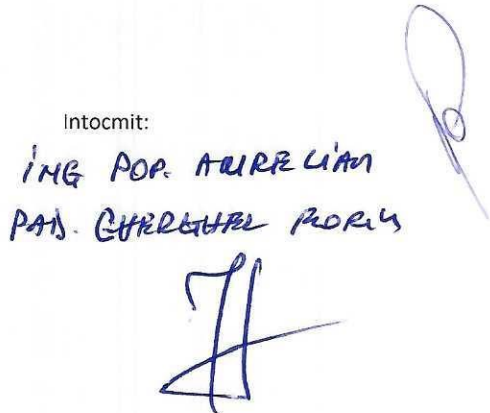 Intocmit:
ING POP. AURELIAN
PAD. GHERGHEL FLORIN